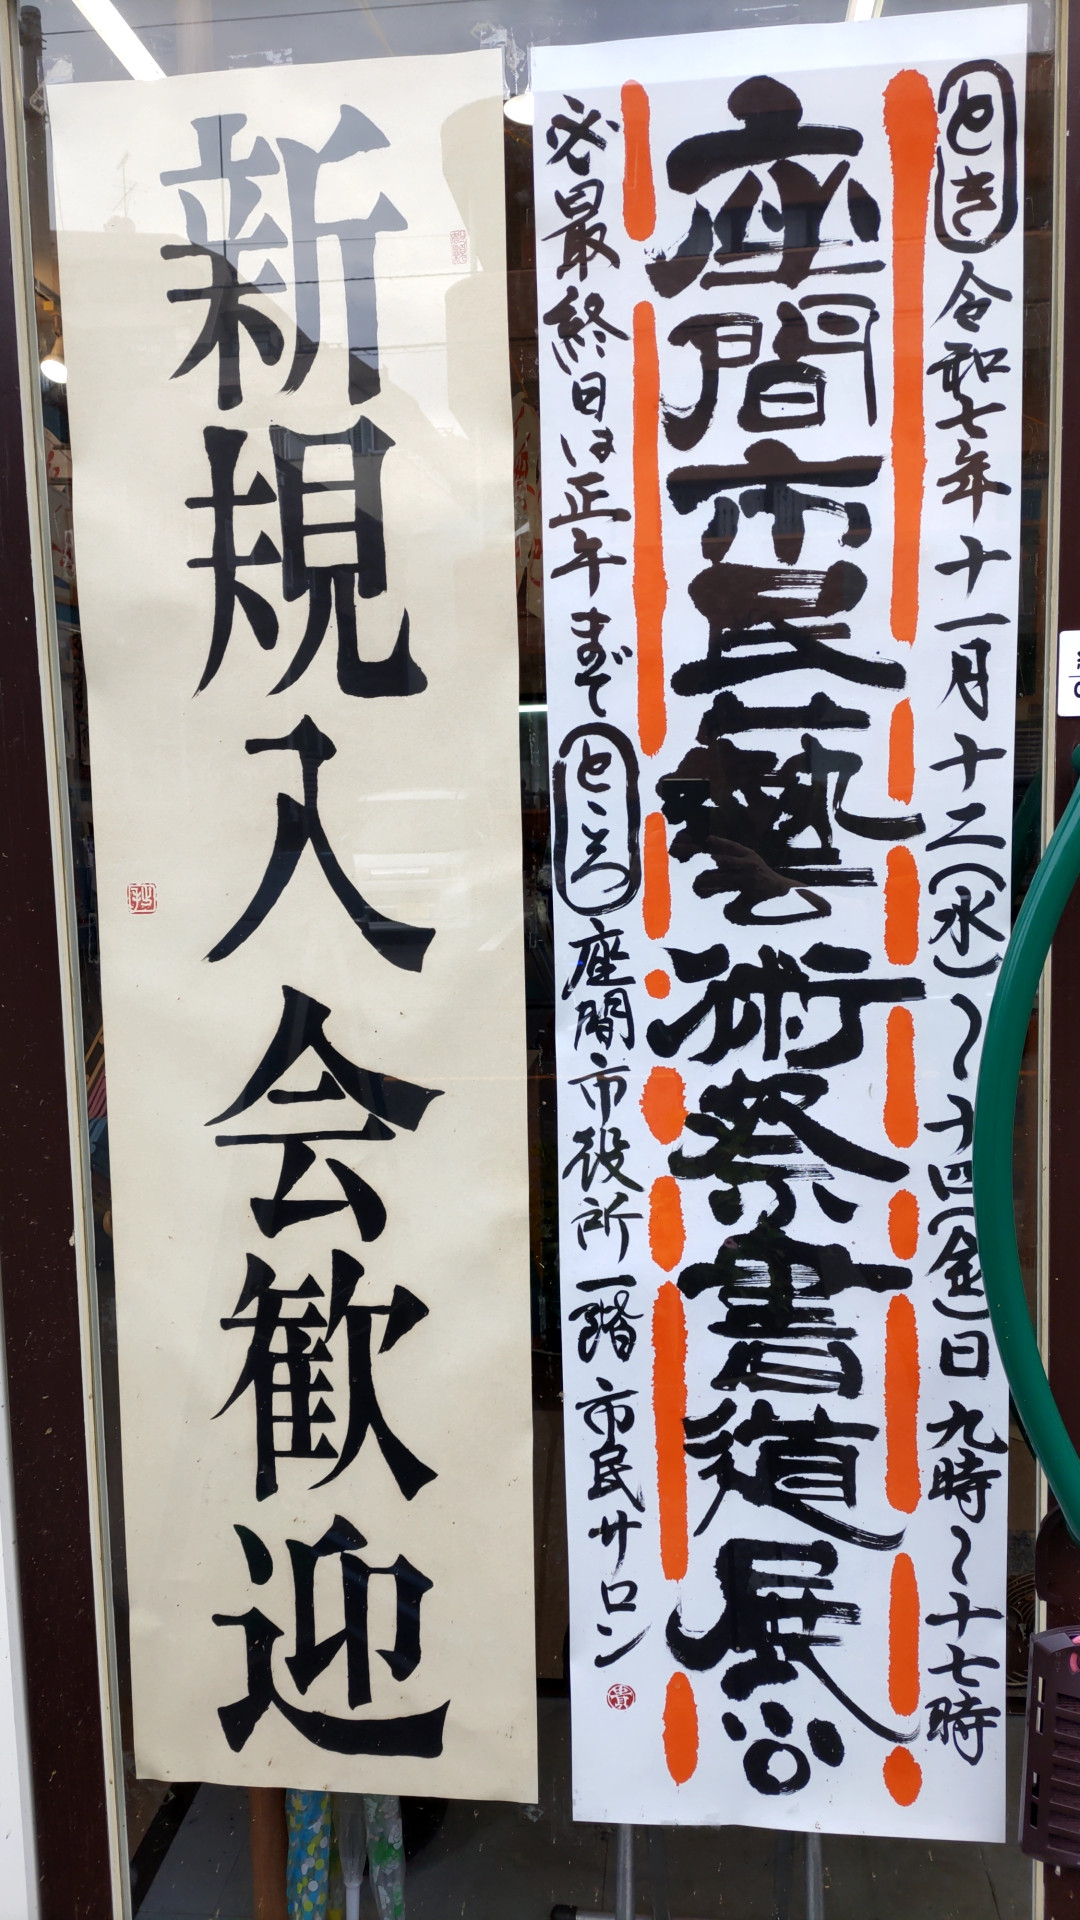 とき 令和七年十一月十二(水)〜十四(金)日 九時〜十七時
座間市民藝術祭書道展
必最終日は正午まで ところ 座間市役所一階 市民サロン
新規入会歓迎